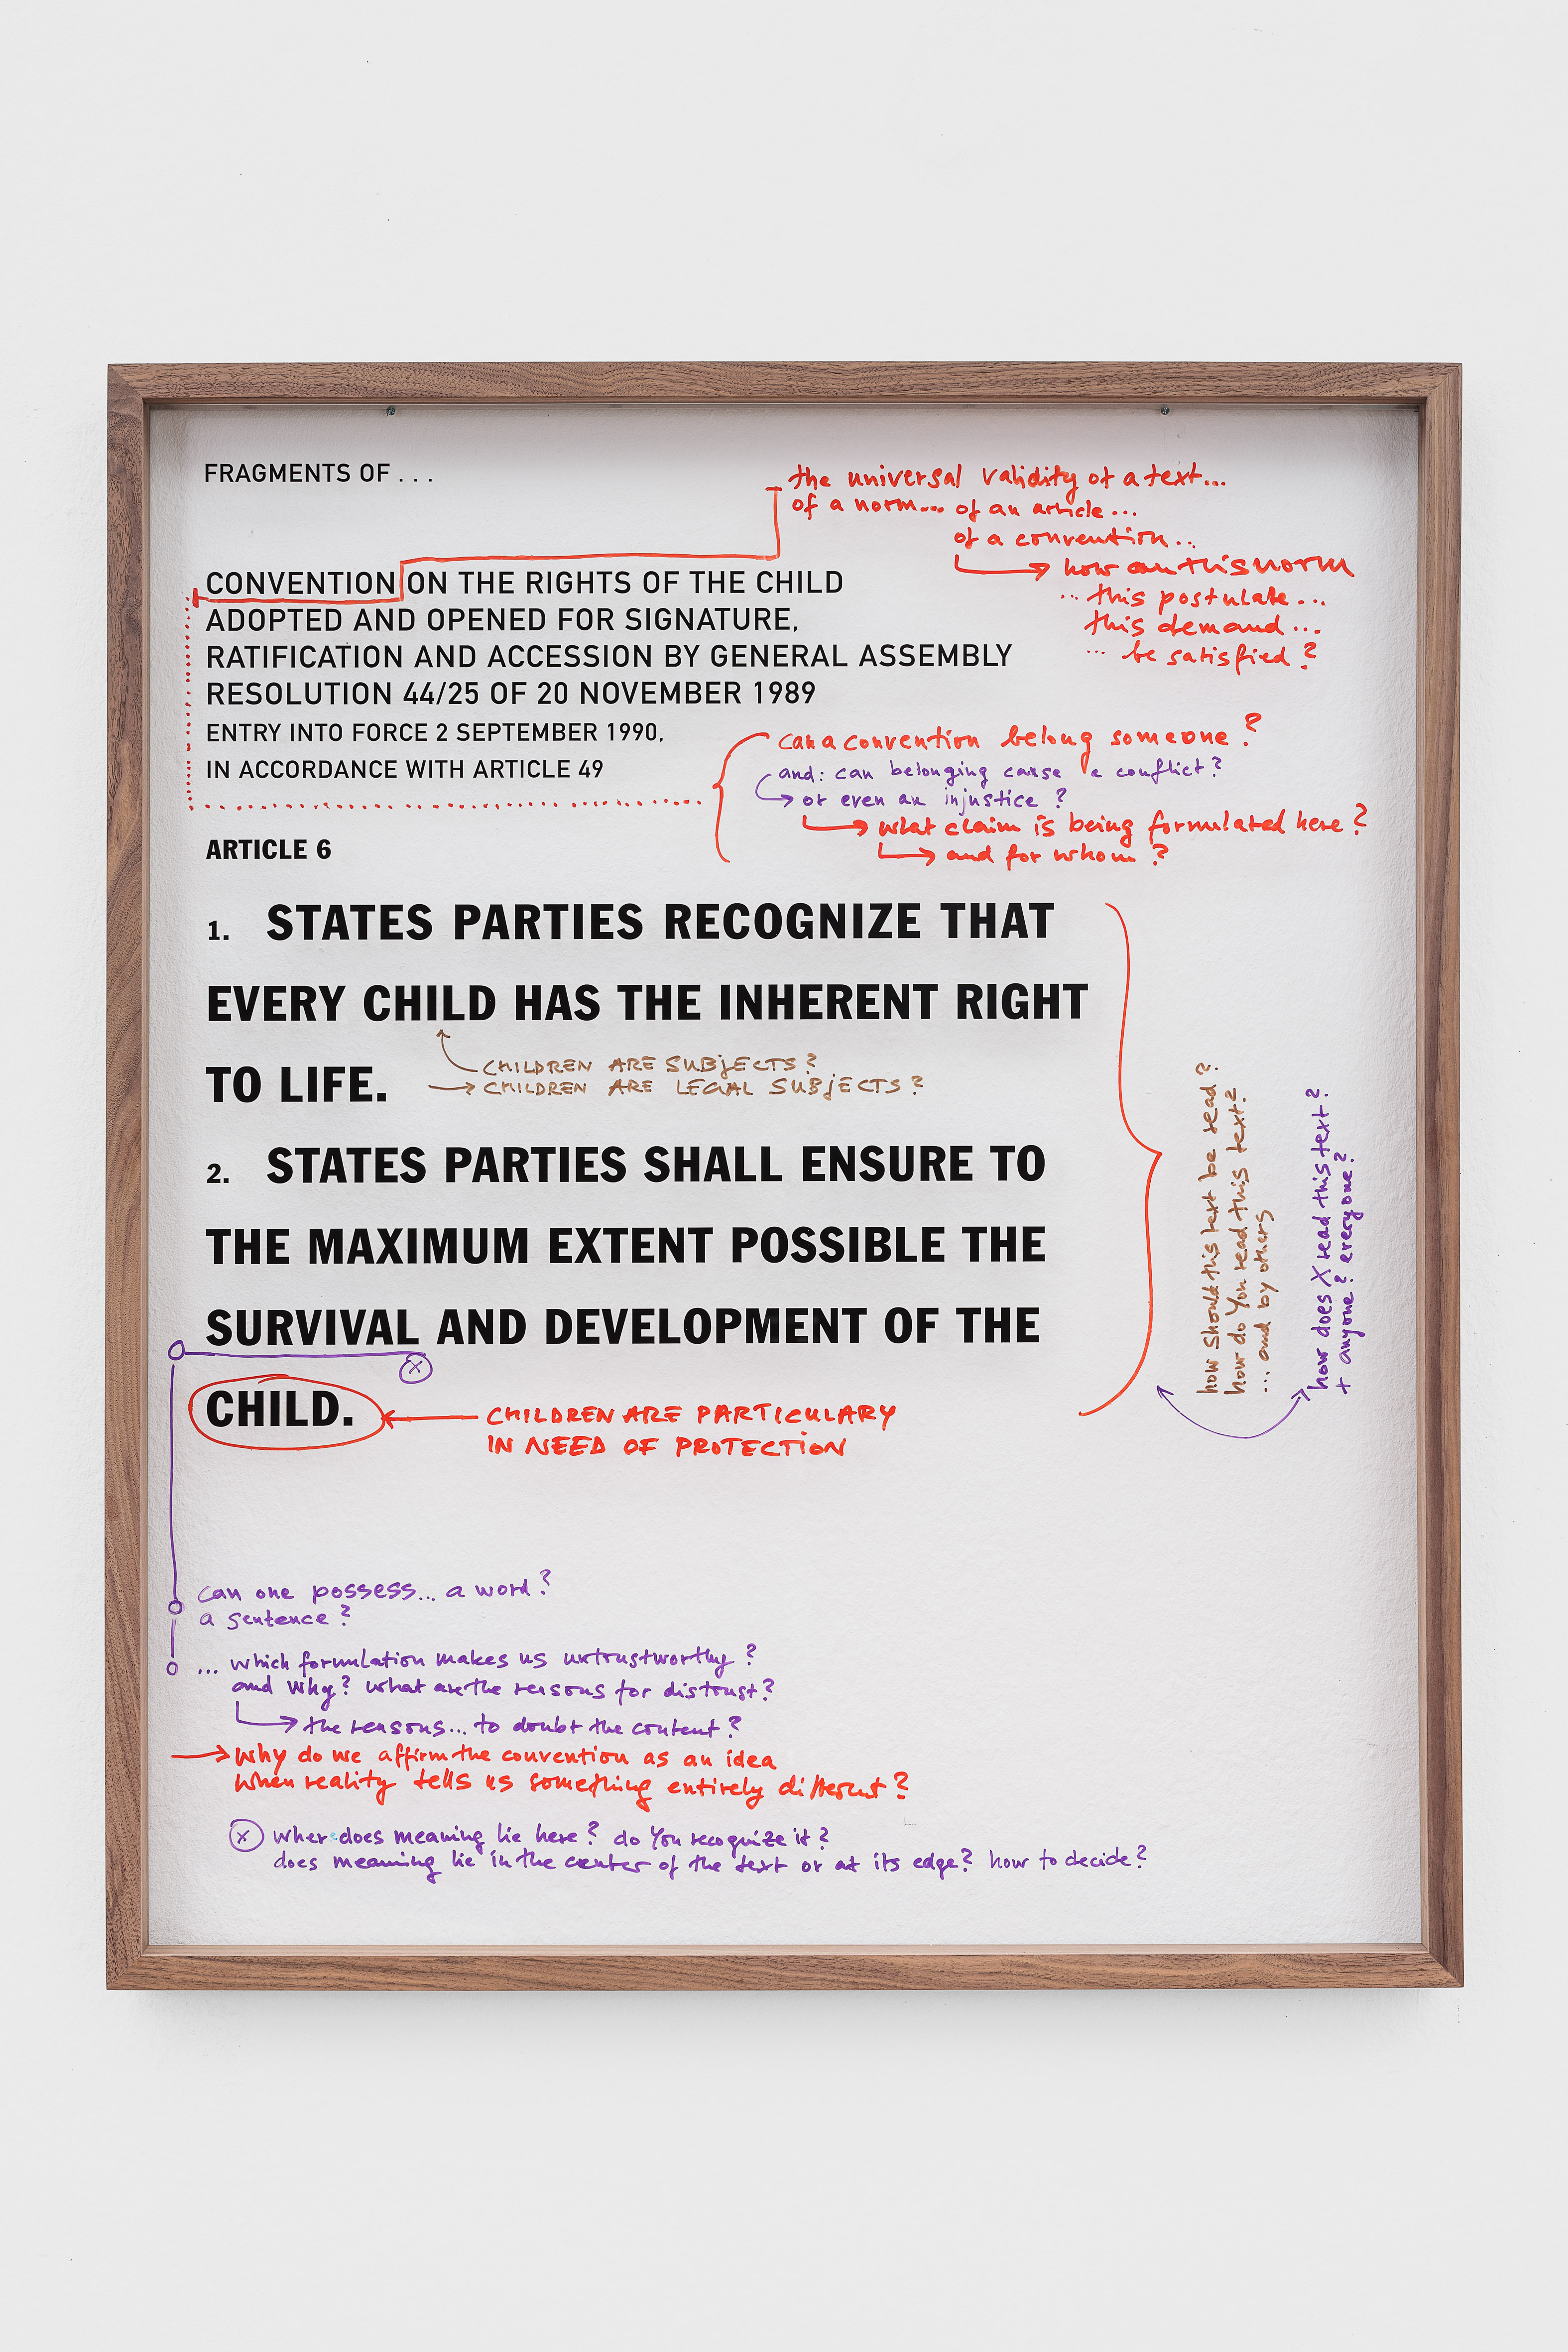 FRAGMENTS OF . . .
the universal validity of a text...
of a norm... of an article...
of a convention..
how can this norm
... this postulate ...
this demand ...
... be satisfied?
CONVENTION ON THE RIGHTS OF THE CHILD
ADOPTED AND OPENED FOR SIGNATURE,
RATIFICATION AND ACCESSION BY GENERAL ASSEMBLY
RESOLUTION 44/25 OF 20 NOVEMBER 1989
ENTRY INTO FORCE 2 SEPTEMBER 1990,
IN ACCORDANCE WITH ARTICLE 49
can a convention belong someone?
and: can belonging cause a conflict?
or even an injustice?
what claim is being formulated here?
and for whom?
ARTICLE 6
1. STATES PARTIES RECOGNIZE THAT
EVERY CHILD HAS THE INHERENT RIGHT
TO LIFE.
CHILDREN ARE SUBJECTS?
CHILDREN ARE LEGAL SUBJECTS?
2. STATES PARTIES SHALL ENSURE TO
THE MAXIMUM EXTENT POSSIBLE THE
SURVIVAL AND DEVELOPMENT OF THE
CHILD.
CHILDREN ARE PARTICULARY
IN NEED OF PROTECTION
how should this text be read?
how do you read this text?
... and by others
how does X read this text?
+ anyone? everyone?
can one possess... a word?
a sentence?
... which formulation makes us untrustworthy?
and why? what are the reasons for distrust?
the reasons... to doubt the content?
why do we affirm the convention as an idea
when reality tells us something entirely different?
x where does meaning lie here? do you recognize it?
does meaning lie in the center of the text or at its edge? how to decide?